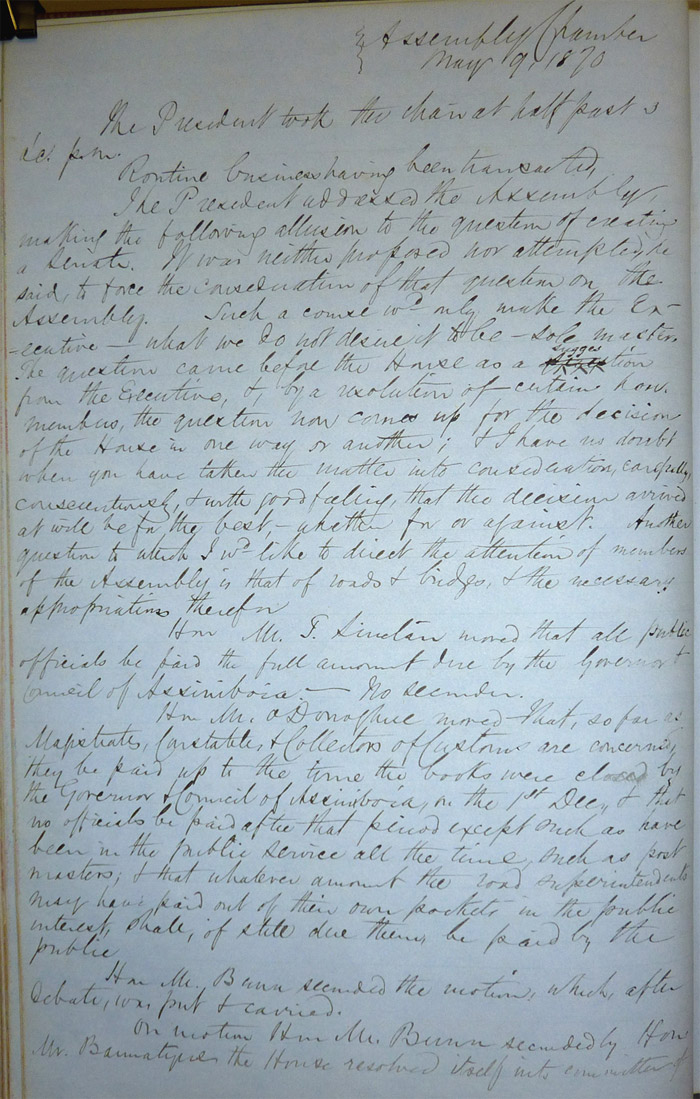 Assembly Chamber
May 9, 1870
The President took the chair at half past 3
o'c. p.m.
Routine business having been transacted,
The President addressed the Assembly,
making the following allusion to the question of creating
a Senate. It was neither proposed nor attempted, he
said, to force the consideration of that question on the
Assembly. Such a course wd only make the Ex-
-ecutive - what we do not desire it to be - sole master.
The question came before the House as a sugges
tion
from the Executive, &, by a resolution of certain hon.
members, the question now comes up for the decision
of the House in one way or another; & I have no doubt
when you have taken the matter into consideration, carefully,
conscientiously, & with good feeling, that the decision arrived
at will be for the best - whether for or against. Another
question to which I wd like to direct the attention of members
of the Assembly is that of roads & bridges, & the necessary
appropriations therefor
Hon Mr. T. Sinclair moved that all public
officials be paid the full amount due by the Governor &
Council of Assiniboia. - No seconder.
Hon Mr. O'Donoghue moved that, so far as
Magistrates, Constables, & Collectors of Customs are concerned,
they be paid up to the time the books were closed by
the Governor & Council of Assiniboia, on the 1st Dec, & that
no officials be paid after that period except such as have
been in the public service all the time, such as post
masters; & that whatever amount the road superintendents
may have paid out of their own pockets in the public
interest, shall, if still due them, be paid by the
public
Hon Mr. Bunn seconded the motion, which, after
debate, was put & carried.
On motion Hon Mr. Bunn seconded by Hon
Mr. Bannatyne the House resolved itself into committee